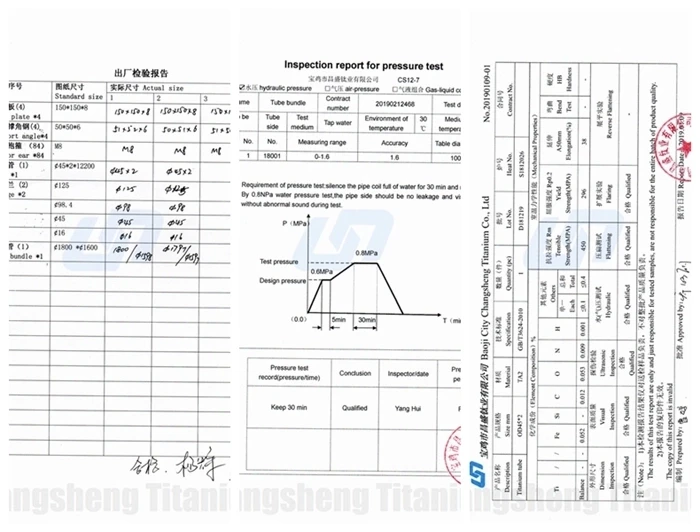 出厂检验报告
图纸尺寸
Standard size
实际尺寸 Actual size
1
2
3
板(4)
plate *4
150*150*8
150×150×8
150×150×8
50*50*6
51×50×6
50×51×6
M8
M8
M8
or ear *84
管 (1)
*1
Φ45*2*12200
Φ45×2
Φ45×2
兰 (2)
Φ125
Φ125
Φ98.4
Φ98
Φ98
Φ45
Φ45
Φ45
Φ16
Φ16
Φ16
管 (1)
bundle *1
Φ1800 *Φ1600
合格
Inspection report for pressure test
宝鸡市昌盛钛业有限公司 CS12-7
水压 hydraulic pressure □气压 air-pressure □气液组合 Gas-liquid
Name
Tube bundle
Contract number
20190212466
Test
Tube side
Test medium
Tap water
Environment of temperature
30 ℃
temperature
No.
No.
Measuring range
Accuracy
Table
1
18001
0-1.6
1.6
100
Requirement of pressure test:silence the pipe coil full of water for 30 min and
By 0.8MPa water pressure test,the pipe side should be no leakage and
without abnormal sound during test.
P (MPa)
0.8MPa
Test pressure
0.6MPa
Design pressure
(0.0)
5min
30min
T (
Pressure test record(pressure/time)
Conclusion
Inspector/date
Keep 30 min
Qualified
Yang Hui
宝鸡市昌盛钛业有限公司 Baoji City Changsheng Titanium Co., Ltd
No.20190109-01
产品名称
Description
产品规格
Size mm
材质
Material
技术标准
Specification
数量(件)
Quantity (pc)
批号
Lot No.
炉号
Heat No.
合同号
Contract No.
Titanium tube
OD45*2
TA2
GB/T3624-2010
1
D181219
S1812026
化学成份 (Element Composition) %
室温力学性能 (Mechanical Properties)
Ti
/
/
Fe
Si
C
O
N
H
其他元素
Others
单一
Each
总和
Total
抗拉强度 Rm
Tensile
Strength(MPA)
屈服强度 Rp0.2
Yield
Strength(MPA)
延伸
A50mm
Elongation(%)
弯曲
Bend
Test
硬度
HB
Hardness
Balance
-
-
0.052
-
0.012
0.053
0.009
0.001
≤0.1
≤0.4
450
296
38
外形尺寸
Dimension
Inspection
表面质量
Visual
Inspection
探伤检验
Ultrasonic
Inspection
水/气压测试
Hydraulic
压扁测试
Flattening
扩展实验
Flaring
展平实验
Reverse Flattening
合格 Qualified
合格 Qualified
合格 Qualified
合格 Qualified
合格 Qualified
合格 Qualified
注 (Note): 1)本检测报告结果仅对送检样品负责，不对整批产品质量负责。
The results of this test report are only and just responsible for tested samples, are not responsible for the entire batch of product quality.
2)本报告的复印件无效。
The copy of this report is invalid
编制 Prepared by:
批准 Approved by:
报告日期 Report Date:
ngsheng Titani